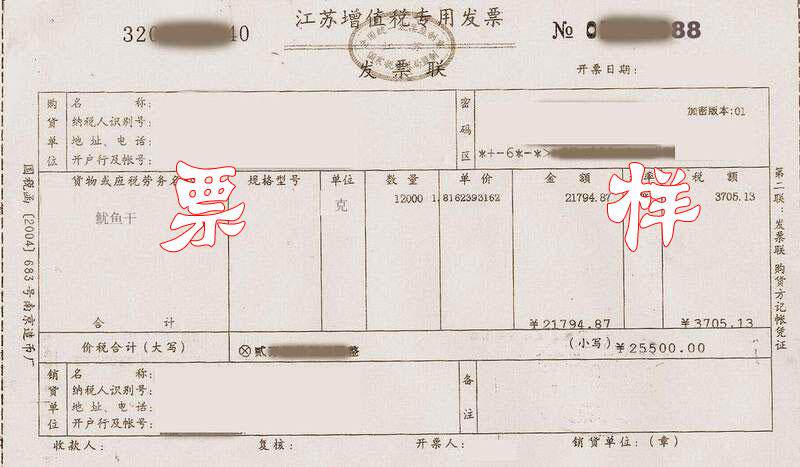 江苏增值税专用发票
320 40
№ 0 88
发票联
开票日期：
购货单位
名 称：
纳税人识别号：
地址、电话：
开户行及帐号：
密码区
加密版本:01
*+-6*-*>
货物或应税劳务名 规格型号 单位 数量 单价 金额 率 税额
鱿鱼干 克 12000 1.8162393162 21794.87 3705.13
票样
合 计 ￥21794.87 ￥3705.13
价税合计（大写） ⊗贰 整 （小写）￥25500.00
销货单位
名 称：
纳税人识别号：
地址、电话：
开户行及帐号：
备注
收款人： 复核： 开票人： 销货单位：（章）
国税函〔2004〕683号南京造币厂
第二联：发票联 购货方记帐凭证